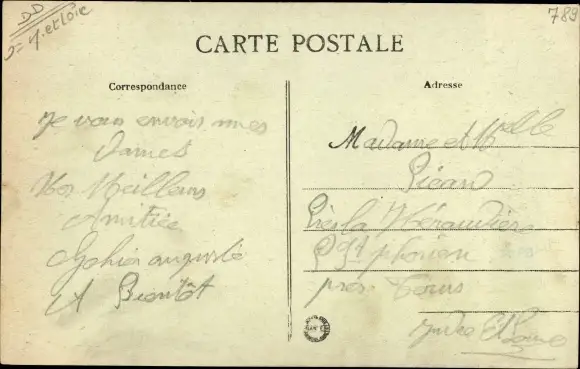 DD
J. et Loir
789
CARTE POSTALE
Correspondance
Je vous envois mes
Dames
Meilleurs
Amitiée
Gohier auguste
A Bientôt
Adresse
Madame et Mlle
Picard
St phorien
près Tours
Indre et Loire